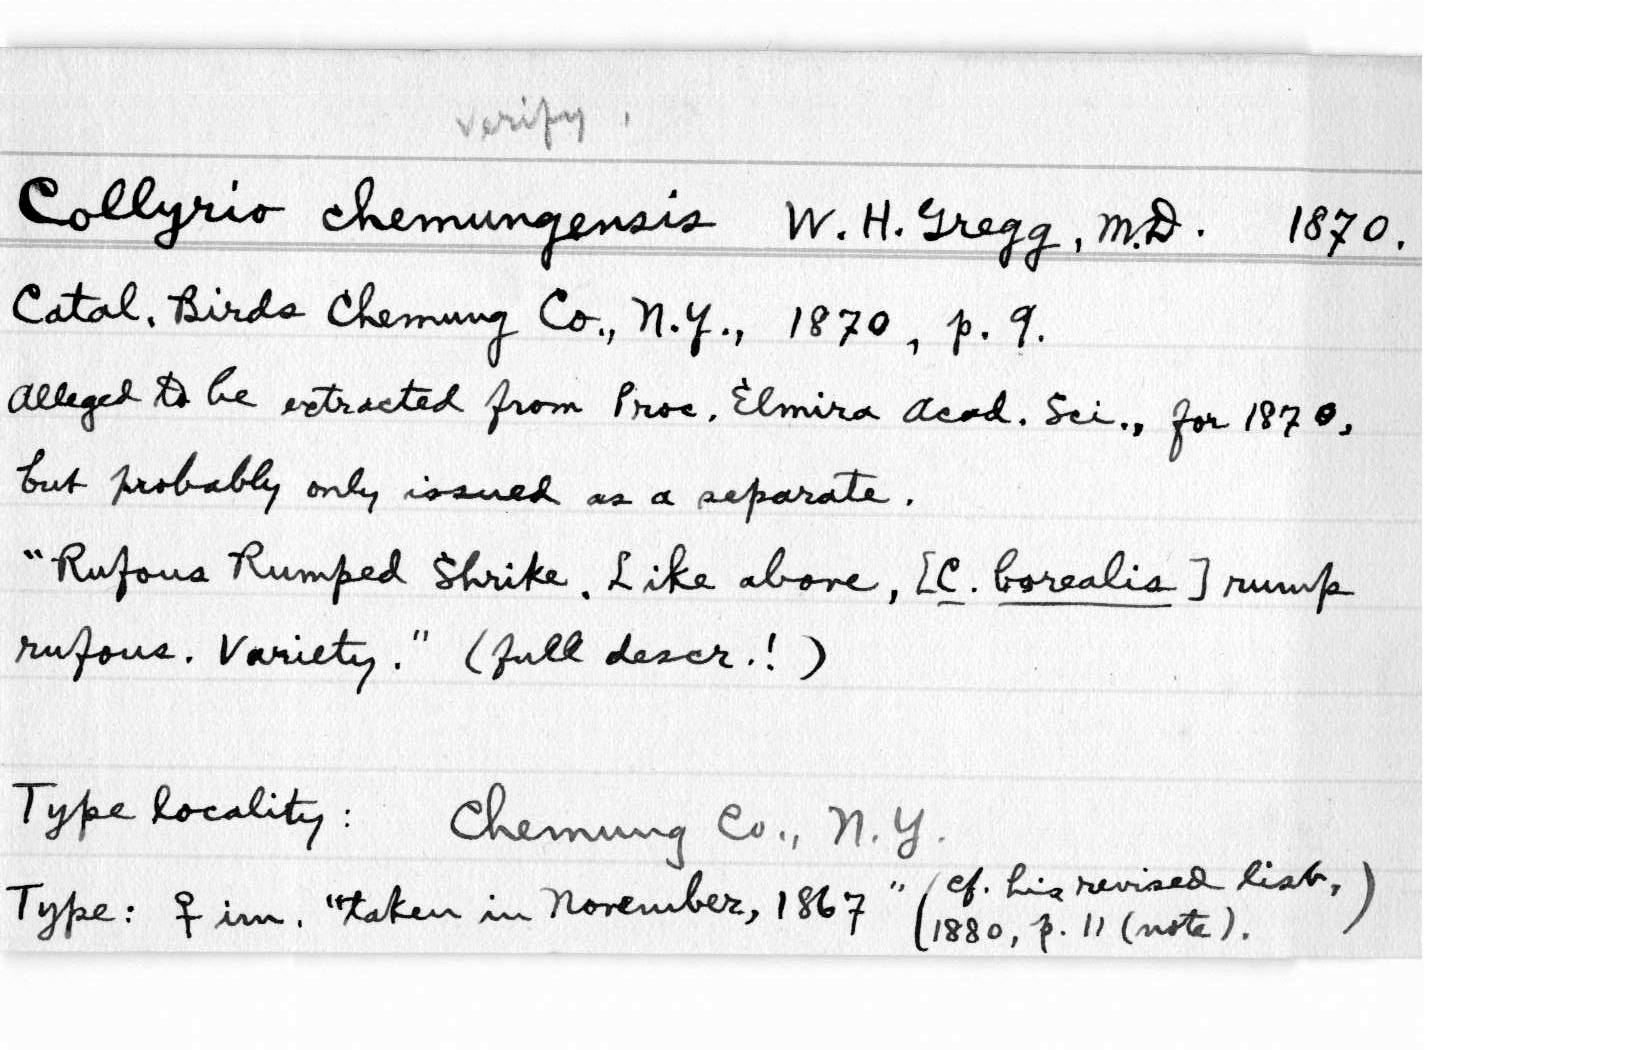 Verify.
Collyrio chemungensis W. H. Gregg, M.D. 1870.
Catal. Birds Chemung Co., N.Y., 1870, p. 9.
Alleged to be extracted from Proc. Elmira Acad. Sci., for 1870,
but probably only issued as a separate.
"Rufous Rumped Shrike. Like above, [C. borealis] rump
rufous. Variety." (full descr.!)
Type locality: Chemung Co., N.Y.
Type: ♀ im. "taken in November, 1867" (cf. his revised list,
1880, p. 11 (note).)